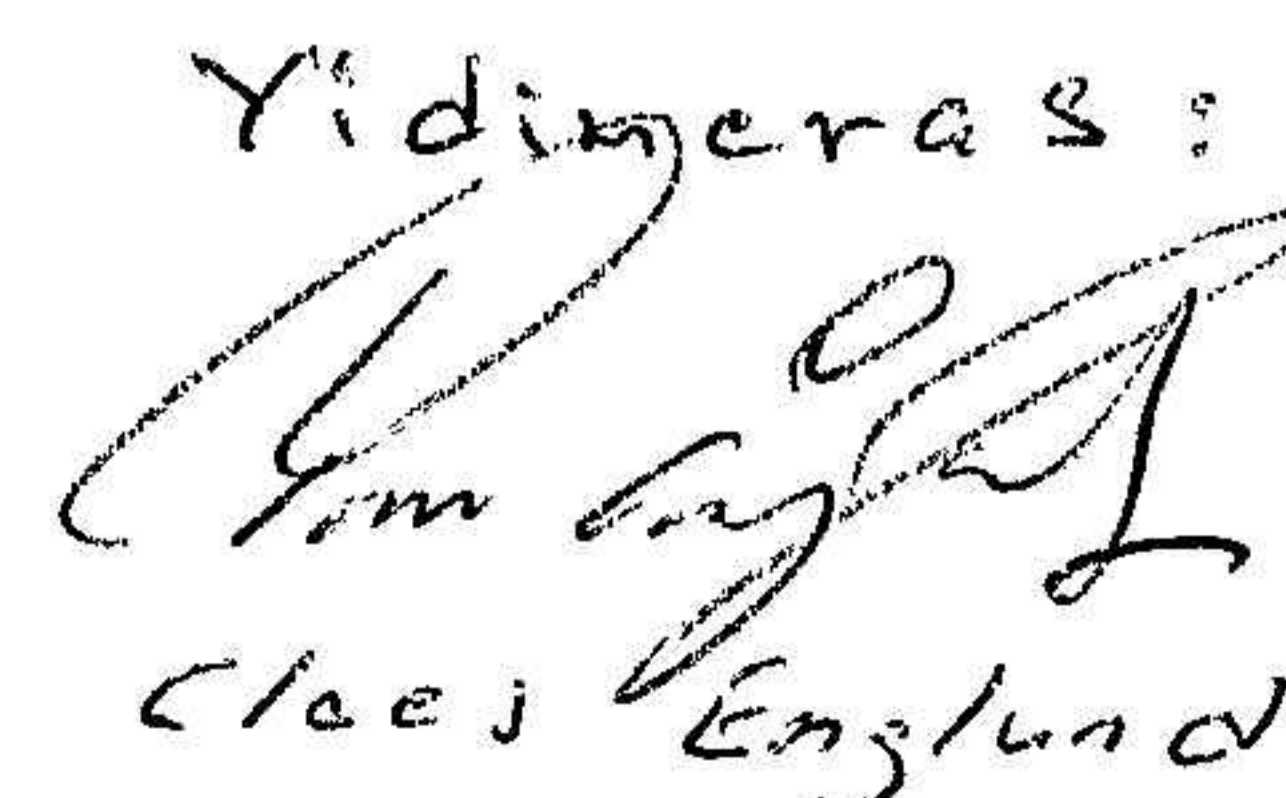 Vidimeras:
Claes Englund